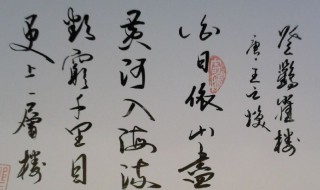 登鸛雀樓
唐·王之渙
白日依山盡
黃河入海流
欲窮千里目
更上一層樓